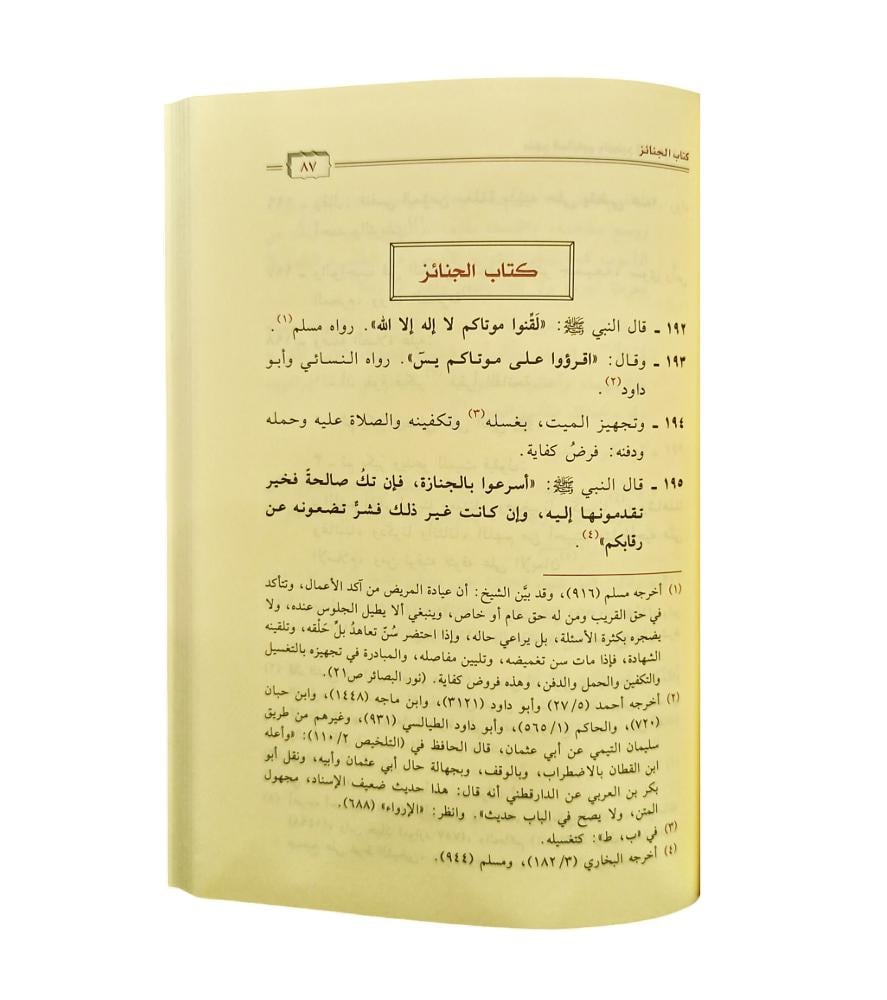 كتاب الجنائز
٨٧
كتاب الجنائز
١٩٢ ـ قال النبي ﷺ: «لَقِّنوا موتاكم لا إله إلا الله». رواه مسلم(١).
١٩٣ ـ وقال: «اقرؤوا على موتاكم يسَ». رواه النسائي وأبو
داود(٢).
١٩٤ ـ وتجهيز الميت، بغسله(٣) وتكفينه والصلاة عليه وحمله
ودفنه: فرضُ كفاية.
١٩٥ ـ قال النبي ﷺ: «أسرعوا بالجنازة، فإن تكُ صالحةً فخير
تقدمونها إليه، وإن كانت غير ذلك فشرٌّ تضعونه عن
رقابكم»(٤).
(١) أخرجه مسلم (٩١٦)، وقد بيَّن الشيخ: أن عيادة المريض من آكد الأعمال، وتتأكد
في حق القريب ومن له حق عام أو خاص، وينبغي ألا يطيل الجلوس عنده، ولا
يضجره بكثرة الأسئلة، بل يراعي حاله، وإذا احتضر سُنّ تعاهدُ بلِّ حَلْقه، وتلقينه
الشهادة، فإذا مات سن تغميضه، وتليين مفاصله، والمبادرة في تجهيزه بالتغسيل
والتكفين والحمل والدفن، وهذه فروض كفاية. (نور البصائر ص٢١).
(٢) أخرجه أحمد (٢٧/٥) وأبو داود (٣١٢١)، وابن ماجه (١٤٤٨)، وابن حبان
(٧٢٠)، والحاكم (٥٦٥/١)، وأبو داود الطيالسي (٩٣١)، وغيرهم من طريق
سليمان التيمي عن أبي عثمان، قال الحافظ في (التلخيص ١١٠/٢): «وأعله
ابن القطان بالاضطراب، وبالوقف، وبجهالة حال أبي عثمان وأبيه، ونقل أبو
بكر بن العربي عن الدارقطني أنه قال: هذا حديث ضعيف الإسناد، مجهول
المتن، ولا يصح في الباب حديث». وانظر: «الإرواء» (٦٨٨).
(٣) في «ب، ط»: كتغسيله.
(٤) أخرجه البخاري (١٨٢/٣)، ومسلم (٩٤٤).